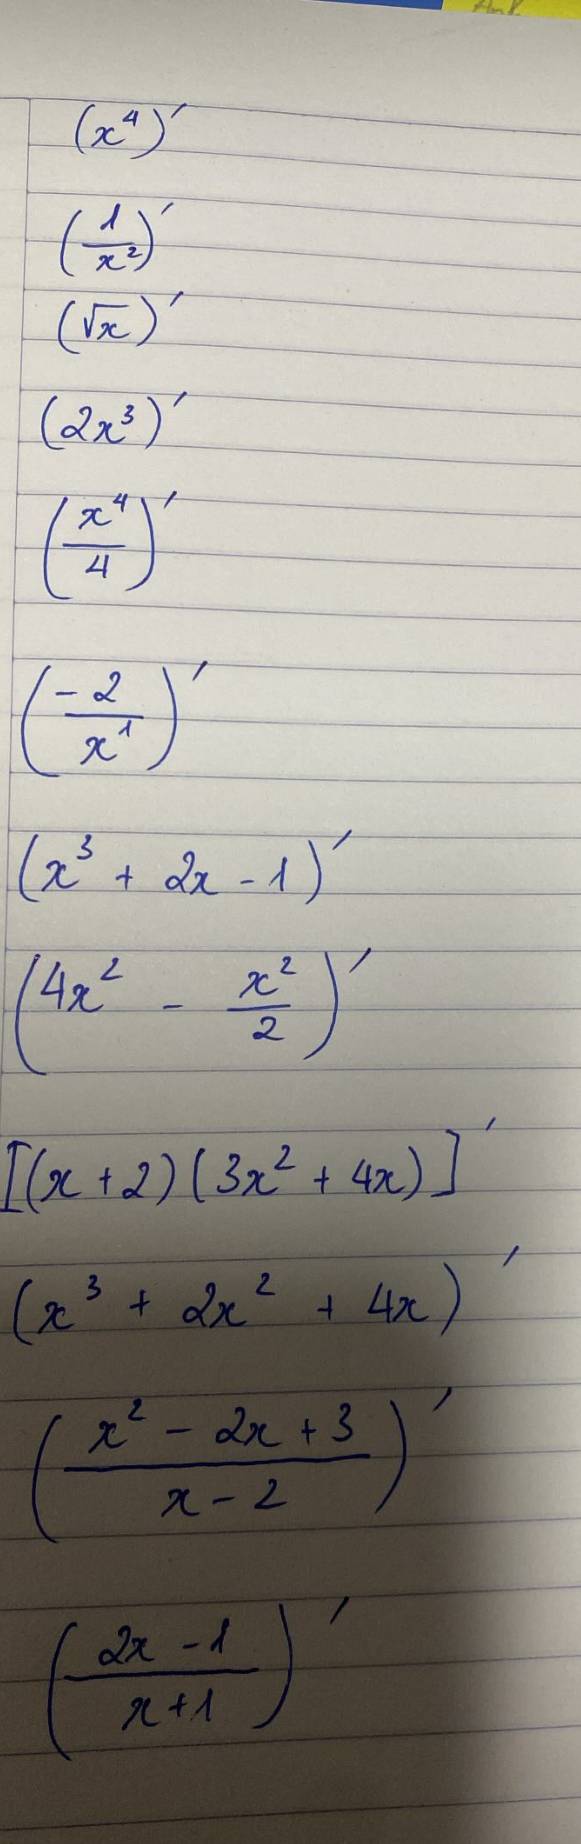 (x⁴)′
(1/x²)′
(√x)′
(2x³)′
(x⁴/4)′
(-2/x¹)′
(x³ + 2x - 1)′
(4x² - x²/2)′
[(x + 2)(3x² + 4x)]′
(x³ + 2x² + 4x)′
((x² - 2x + 3)/(x - 2))′
((2x - 1)/(x + 1))′